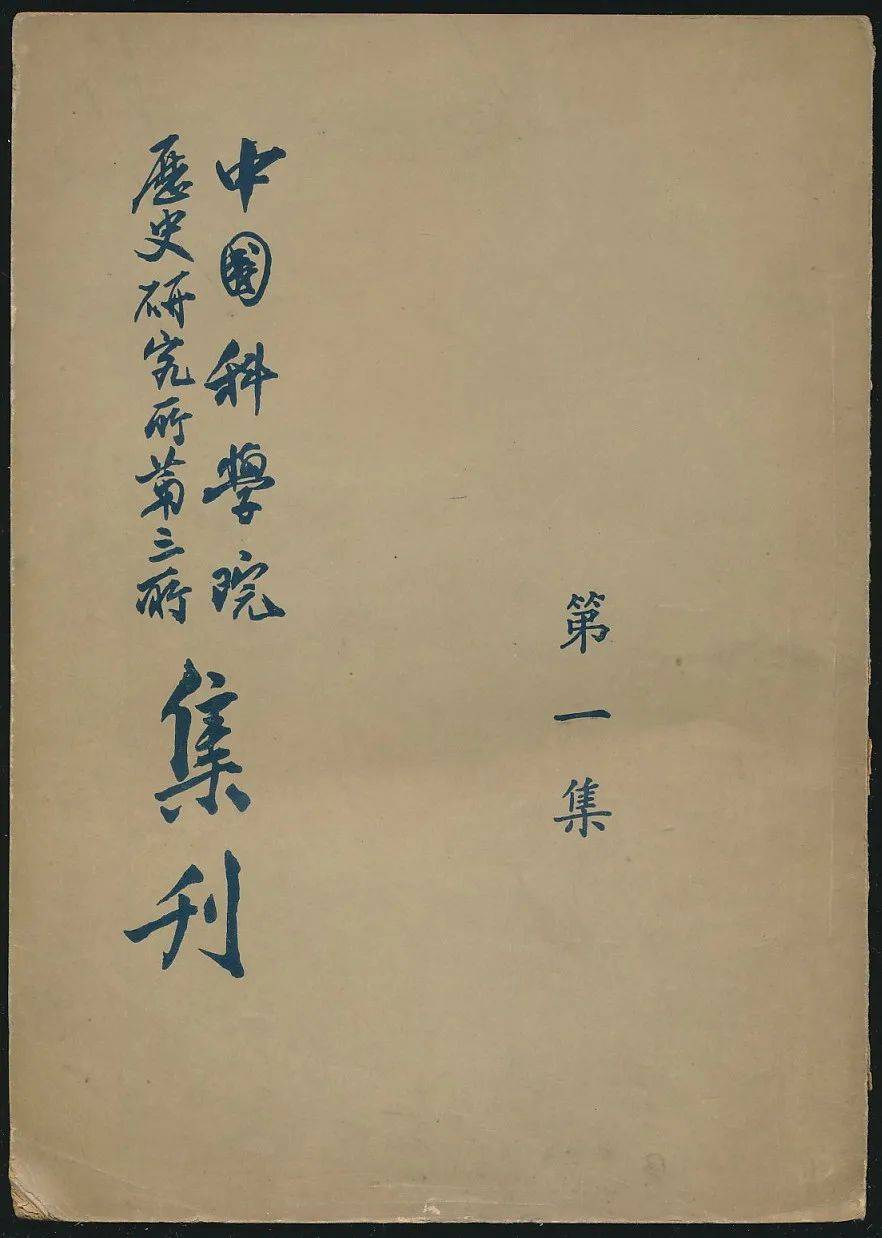 中國科學院
歷史研究所第三所
集刊
第一集